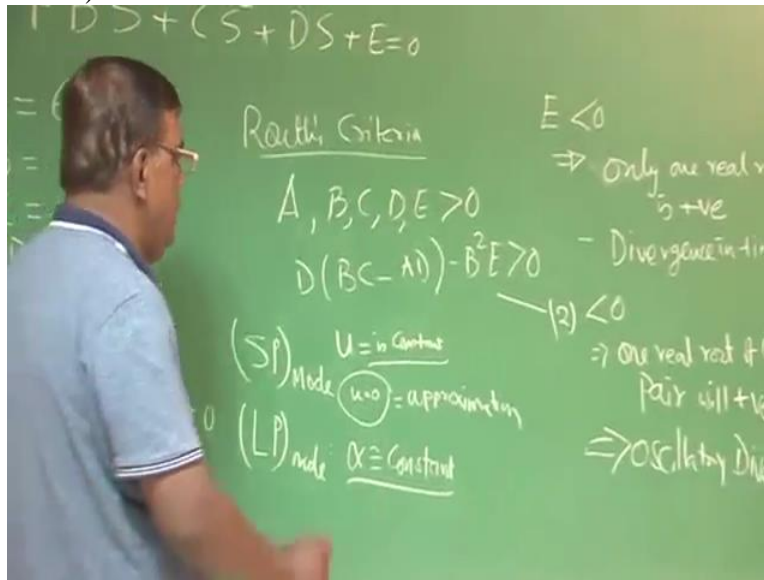 BS + CS² + DS + E = 0
Routh's Criteria
A, B, C, D, E > 0
D(BC - AD) - B²E > 0
(SP) Mode U = is Constant
u=0 = approximation
(LP) mode: α ≡ Constant
E < 0
⇒ Only one real
is +ve
- Divergence in
(2) < 0
⇒ one real root of
Pair will +ve
⇒ Oscillatory